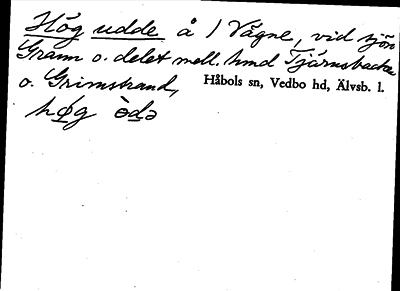 Hög udde å 1 Vägne, vid sjön
Grann o. delet mell. hmd Tjärnsbacka
o. Grimstrand,
Håbols sn, Vedbo hd, Älvsb. l.
hø̱g òdə